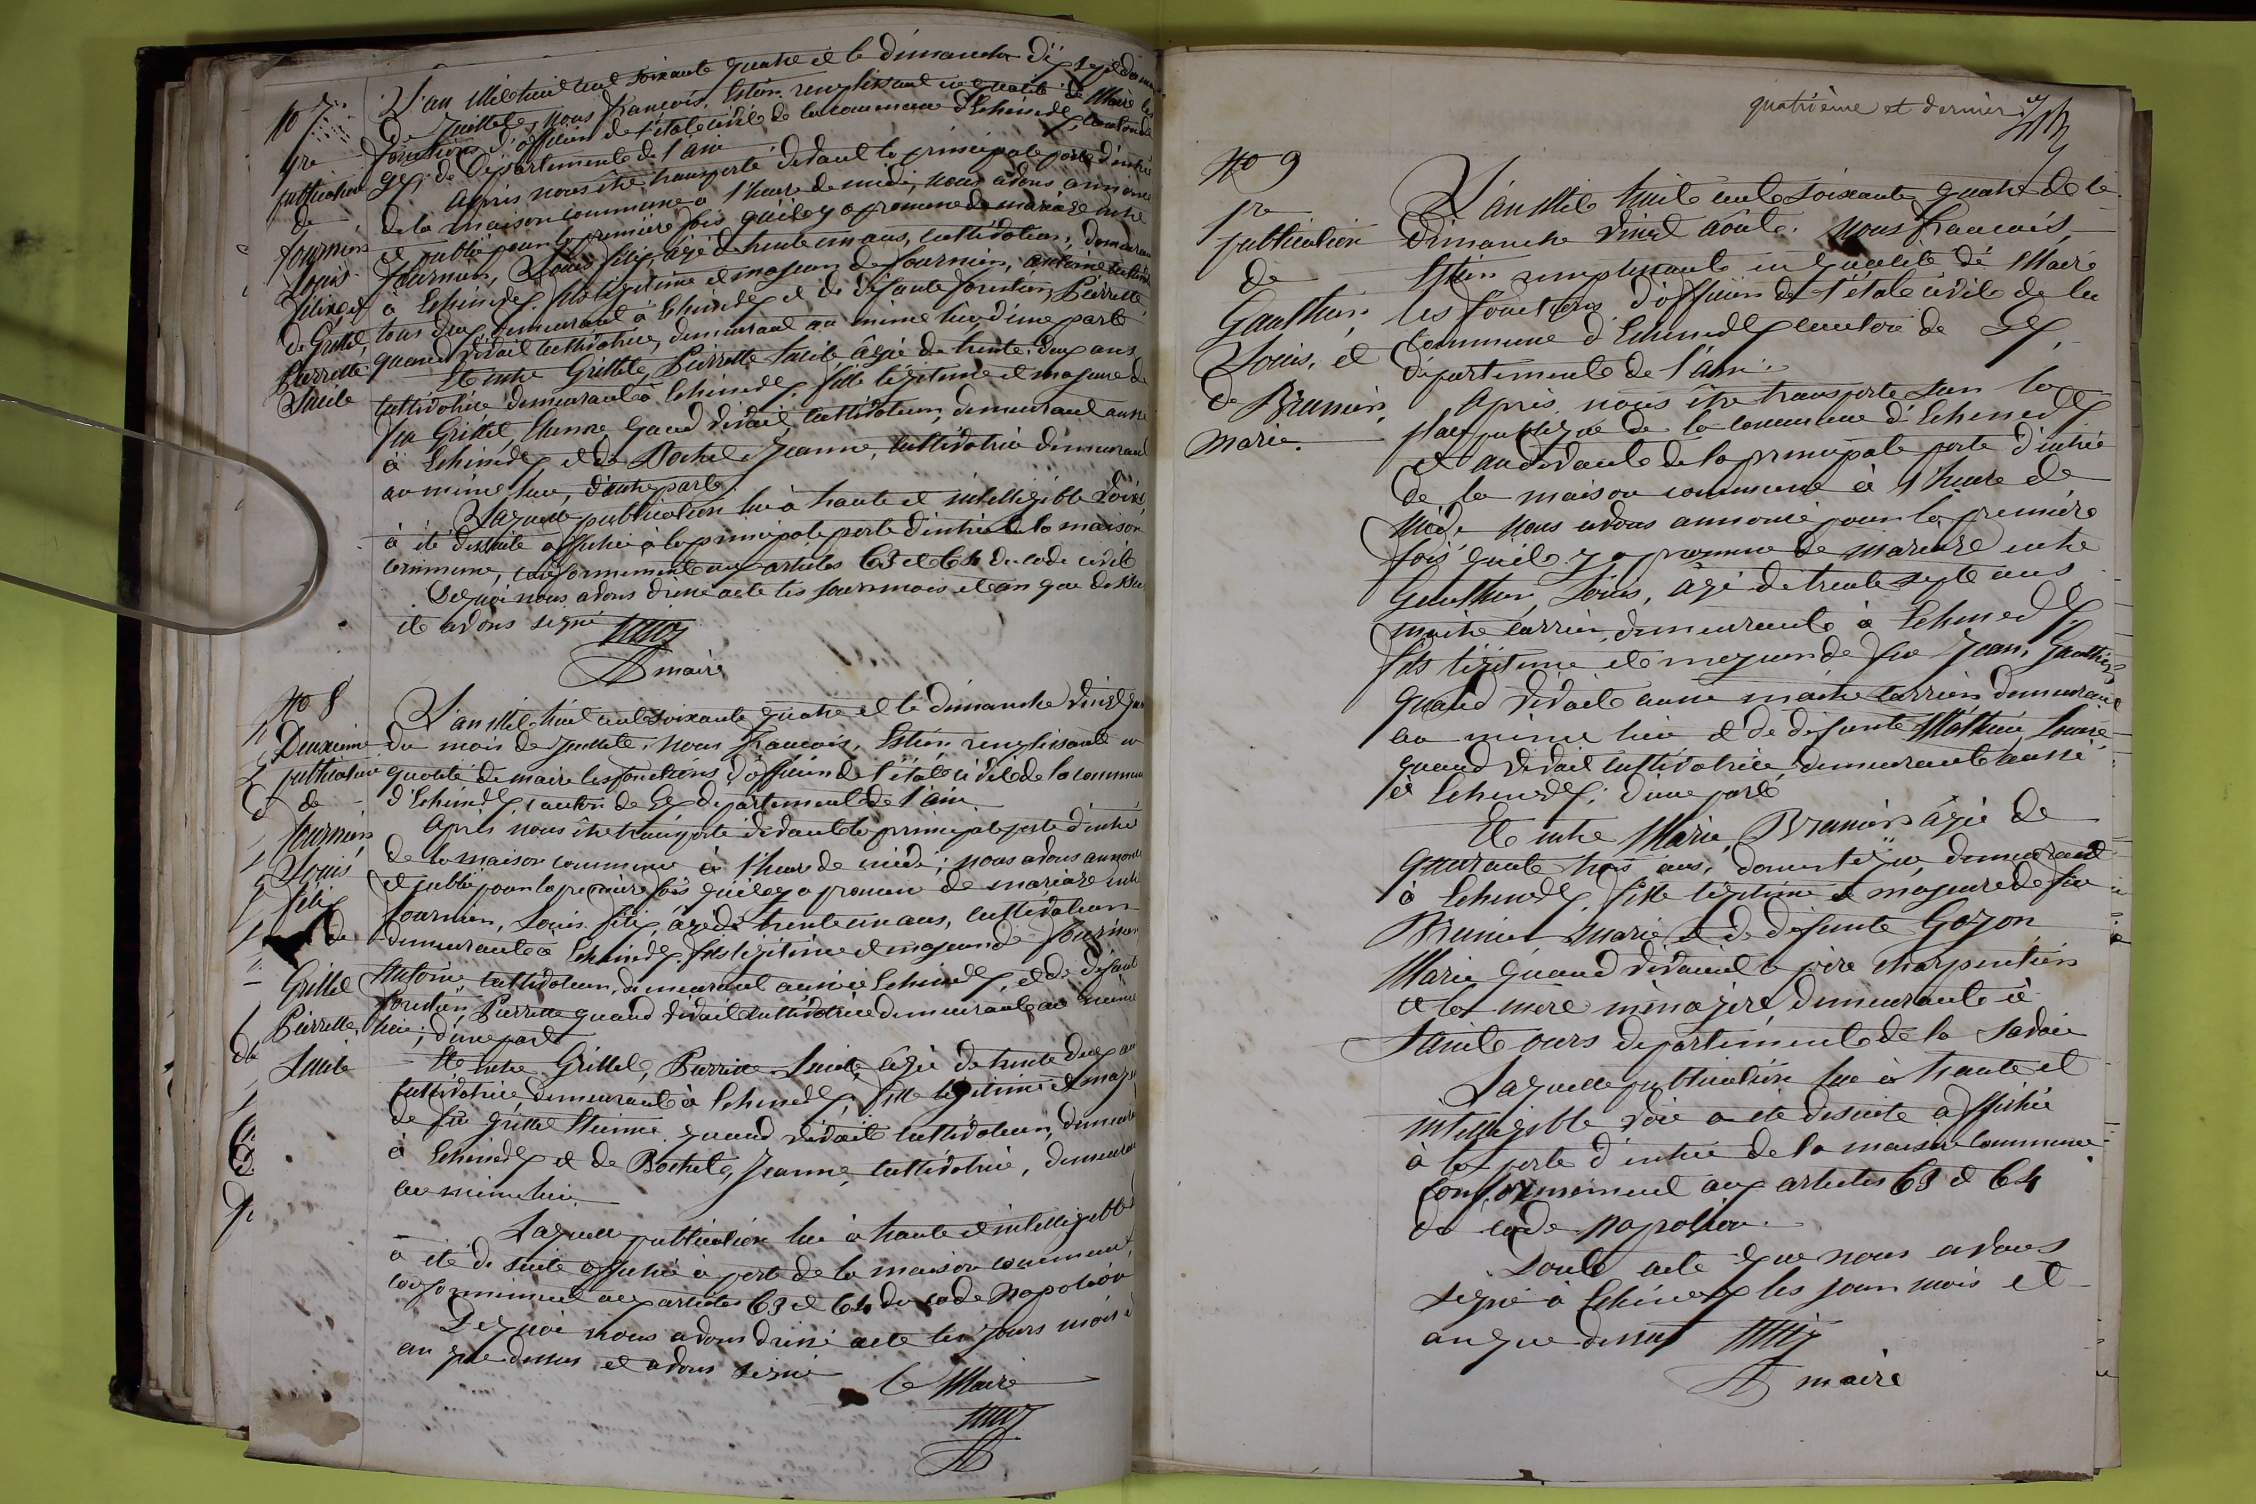 No 7
1re
publication
de
fournier
Louis
félix et
de Grillet,
Pierrette
Lucile
L'an Mil huit cent soixante quatre et le dimanche dix sept du mois
de Juillet, nous françois, Estier remplissant en qualité de Maire les
fonctions d'officier de l'état civil de la commune d'Echenevex, canton de
Gex, département de l'ain
après nous être transporté devant la principale porte d'entrée
de la maison commune à l'heure de midi, nous avons annoncé
et publié pour la première fois qu'il y a promesse de mariage entre
fournier, Louis félix âgé de trente un ans, cultivateur, demeurant
à Echenevex, fils légitime et majeur de fournier, antoine cultivateur
tous deux demeurant à Echenevex et de défunte Pierrette
quand vivait cultivatrice, demeurant au même lieu, d'une part
Et entre Grillet, Pierrette Lucile âgée de trente deux ans
cultivatrice demeurant à Echenevex, fille légitime et majeure de
feu Grillet, Etienne quand vivait, cultivateur, demeurant aussi
à Echenevex et de Bochet, Jeanne, cultivatrice demeurant
au même lieu, d'autre part
Laquelle publication lue à haute et intelligible voix,
à été desuite affichée à la principale porte d'entrée de la maison
commune, conformement aux articles 63 et 64 du code civil
De quoi nous avons dressé acte les jour mois et an que dessus
et avons signé
maire
No 8
Deuxième
publication
de
fournier
Louis
félix
de
Grillet
Pierrette,
Lucile
L'an Mil-huit cent soixante quatre et le dimanche vingt quatre
du mois de Juillet, nous françois, Estier, remplissant en
qualité de maire les fonctions d'officier de l'état civil de la commune
d'Echenevex, canton de Gex département de l'ain
après nous être transporté devant la principale porte d'entrée
de la maison commune à l'heure de midi; nous avons annoncé
et publié pour la première fois qu'il y a promesse de mariage entre
fournier, Louis félix, âgé de trente un ans, cultivateur
demeurant à Echenevex, fils légitime et majeur de fournier
Antoine, cultivateur, demeurant aussi à Echenevex, et de défunte
Pierrette quand vivait cultivatrice demeurant au même
lieu, d'une part
Et entre Grillet, Pierrette Lucile, âgée de trente deux ans
cultivatrice, demeurant à Echenevex, fille légitime et maj
de feu Grillet Etienne quand vivait cultivateur, demeurant
à Echenevex et de Bochet, Jeanne, cultivatrice, demeurant
au même lieu
Laquelle publication lue à haute et intelligible
a été de suite affichée à porte de la maison commune,
conformement aux articles 63 et 64 du code Napoléon
De quoi nous avons dressé acte les jours mois et
an que dessus et avons signé
le Maire
quatrième et dernier
No 9
1re
publication
de
Gauthier,
Louis, et
de Brunier,
marie.
L'an Mil huit cent soixante quatre et le
Dimanche vingt août. nous françois,
Estier remplissant en qualité de Maire
les fonctions d'officier de l'état civil de la
Commune d'Echenevex canton de Gex,
département de l'ain.
après nous être transporté sur la
place publique de la commune d'Echenevex
et au devant de la principale porte d'entrée
de la maison commune à l'heure de
midi nous avons annoncé pour la première
fois qu'il y a promesse de mariage entre
Gauthier, Louis, âgé de trente sept ans
maître carrier, demeurant à Echenevex,
fils légitime et majeur de feu Jean, Gauthier
quand vivait aussi maître carrier demeurant
au même lieu et de défunte Mathieu, Louise
quand vivait cultivatrice, demeurant aussi
à Echenevex; d'une part
Et entre Marie, Brunier âgée de
quarante trois ans, domestique, demeurant
à Echenevex, fille légitime et majeure de feu
Brunier marie et de défunte Gozon
Marie quand vivaient le père charpentier
et la mère ménagère, demeurant à
Sainte ours département de la Savoie
Laquelle publication lue à haute et
intelligible voix a été desuite affichée
à la porte d'entrée de la maison commune
conformément aux articles 63 et 64
du code Napoléon.
Dont acte que nous avons
signé à Echenevex les jour mois et
an que dessus
maire